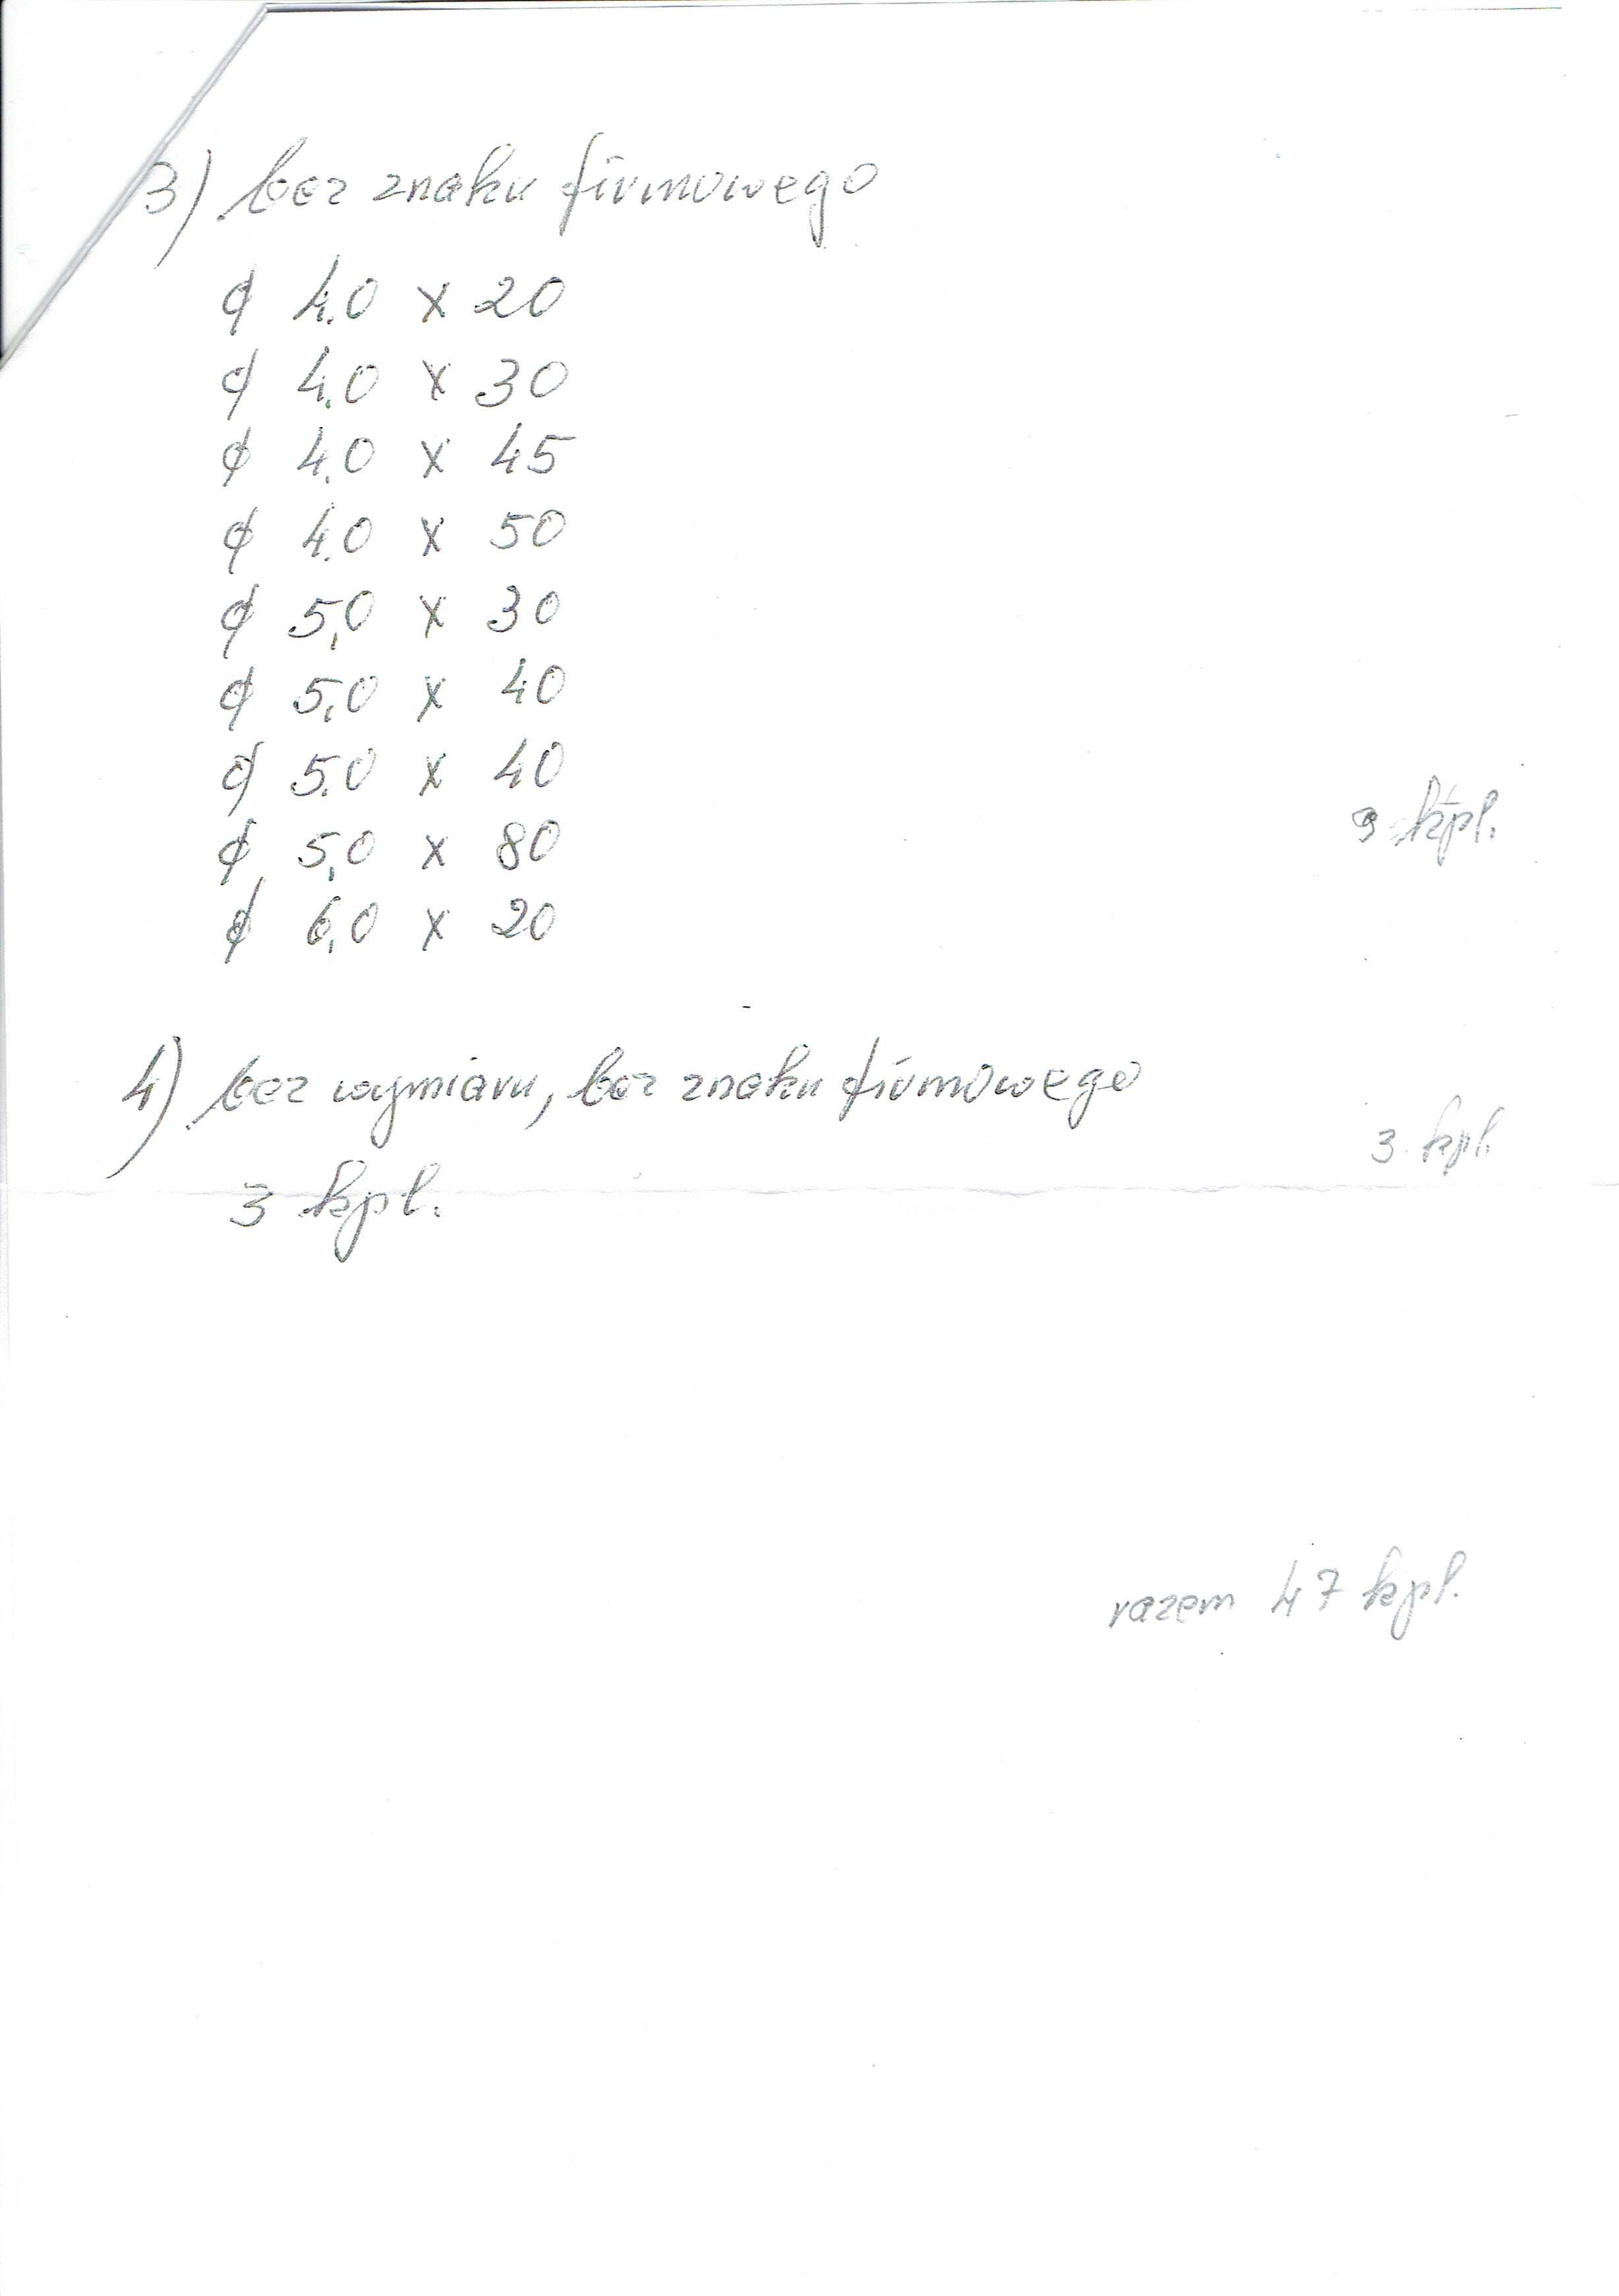 3) bez znaku firmowego
ϕ 4.0 x 20
ϕ 4.0 x 30
ϕ 4.0 x 45
ϕ 4.0 x 50
ϕ 5,0 x 30
ϕ 5,0 x 40
ϕ 5.0 x 40
ϕ 5,0 x 80
ϕ 6,0 x 20
9 kpl.
4) bez wymiaru, bez znaku firmowego
3 kpl.
3 kpl.
razem 47 kpl.